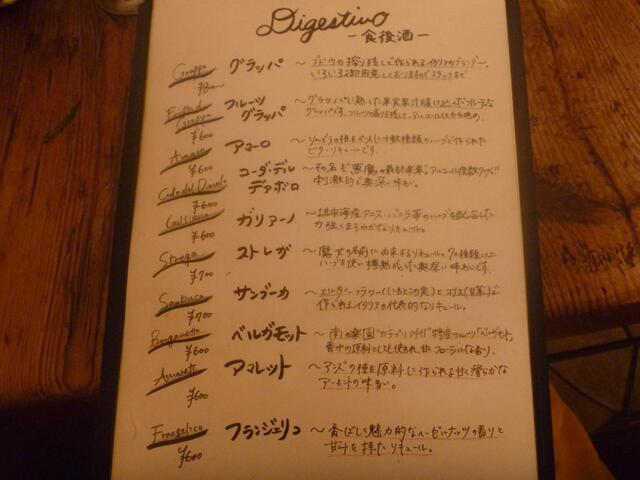 Digestivo
－食後酒－
Grappa グラッパ ～ブドウの搾り残しで作られるイタリアのブランデー。
¥800～ いろいろ御用意しておりますのでスタッフまで
フルーツ グラッパ ～グラッパに熟した果実果汁を漬け込んだフルーティな
¥600 グラッパです。フルーツの香りを残して、アルコールは
Amaro アマーロ ～りんどうの根をベースに十数種類のハーブで作られた
¥600 ビターリキュールです。
Coda del Diavolo コーダ・デル ディアボロ ～その名も"悪魔の最終楽章"アルコール度数70%!!
¥600 刺激的で奥深い味わい。
Galliano ガリアーノ ～地中海産アニス・バニラ等のハーブを配合した
¥600 力強くまろやかなリキュール。
Strega ストレガ ～魔女の名前に由来するリキュール。70種類以上
¥700 ハーブを使い樽熟成した奥深い味わいです。
Sambuca サンブーカ ～エルダーフラワー(にわとこの実)とコリス(甘草)で
¥700 作られるイタリアの代表的なリキュール。
Bergamotto ベルガモット ～南の楽園"カラブリア州"特産フルーツ「ベルガモット」
¥600 香水の原料としても使われ、甘くフローラルな香り。
Amaretto アマレット ～アンズの種を原料に作られる甘く滑らかな
¥600 アーモンドの味わい。
Frangelico フランジェリコ ～香ばしく魅力的なヘーゼルナッツの香りと
¥600 甘みを持ったリキュール。